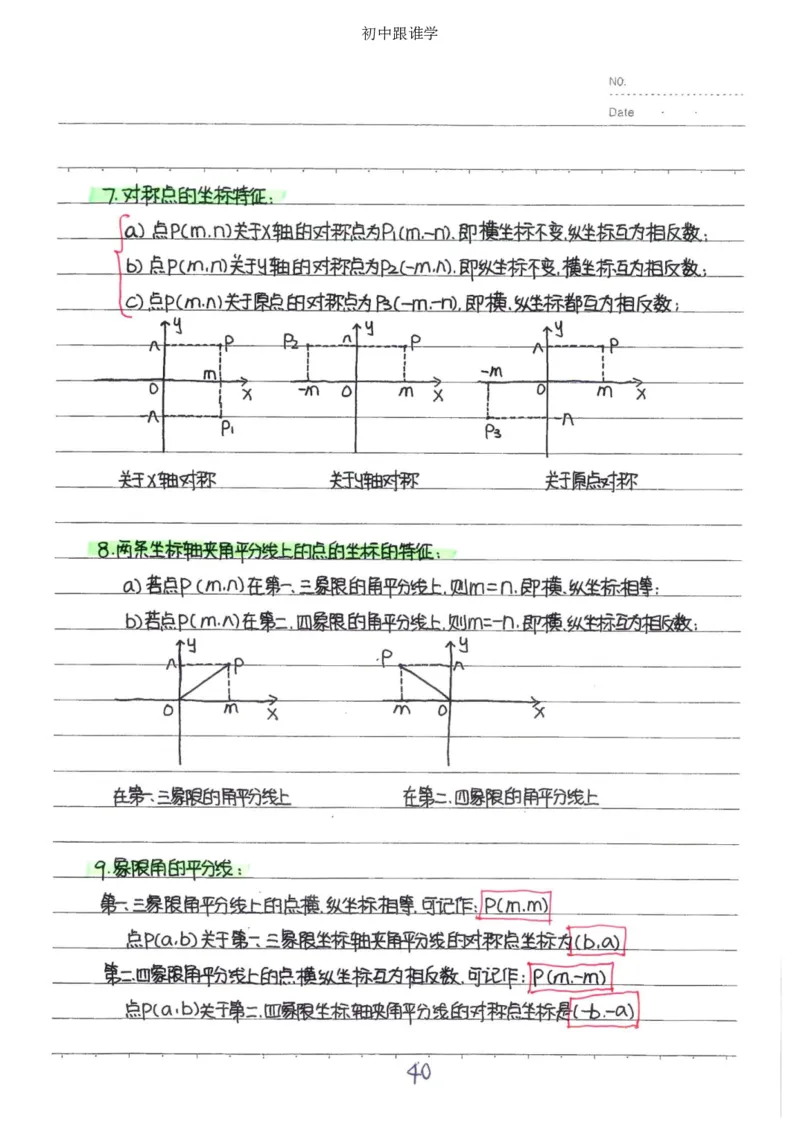 初中跟谁学
NO.
Date
7.对称点的坐标特征:
a) 点P(m,n)关于X轴的对称点为P1(m,-n),即横坐标不变,纵坐标互为相反数;
b) 点P(m,n)关于y轴的对称点为P2(-m,n),即纵坐标不变,横坐标互为相反数;
c) 点P(m,n)关于原点的对称点为P3(-m,-n),即横、纵坐标都互为相反数;
y y y
n P P2 n P n P
m -m
0 X -m 0 m X 0 m X
-n P1 P3 -n
关于X轴对称 关于y轴对称 关于原点对称
8.两条坐标轴夹角平分线上的点的坐标的特征:
a) 若点P(m,n)在第一、三象限的角平分线上,则m=n,即横、纵坐标相等;
b) 若点P(m,n)在第二、四象限的角平分线上,则m=-n,即横、纵坐标互为相反数;
y y
n P P n
0 m X m 0 X
在第一、三象限的角平分线上 在第二、四象限的角平分线上
9.象限角的平分线:
第一、三象限角平分线上的点横、纵坐标相等,可记作:P(m,m)
点P(a,b)关于第一、三象限坐标轴夹角平分线的对称点坐标为(b,a)
第二、四象限角平分线上的点横纵坐标互为相反数,可记作:P(m,-m)
点P(a,b)关于第二、四象限坐标轴夹角平分线的对称点坐标是(-b,-a)
40